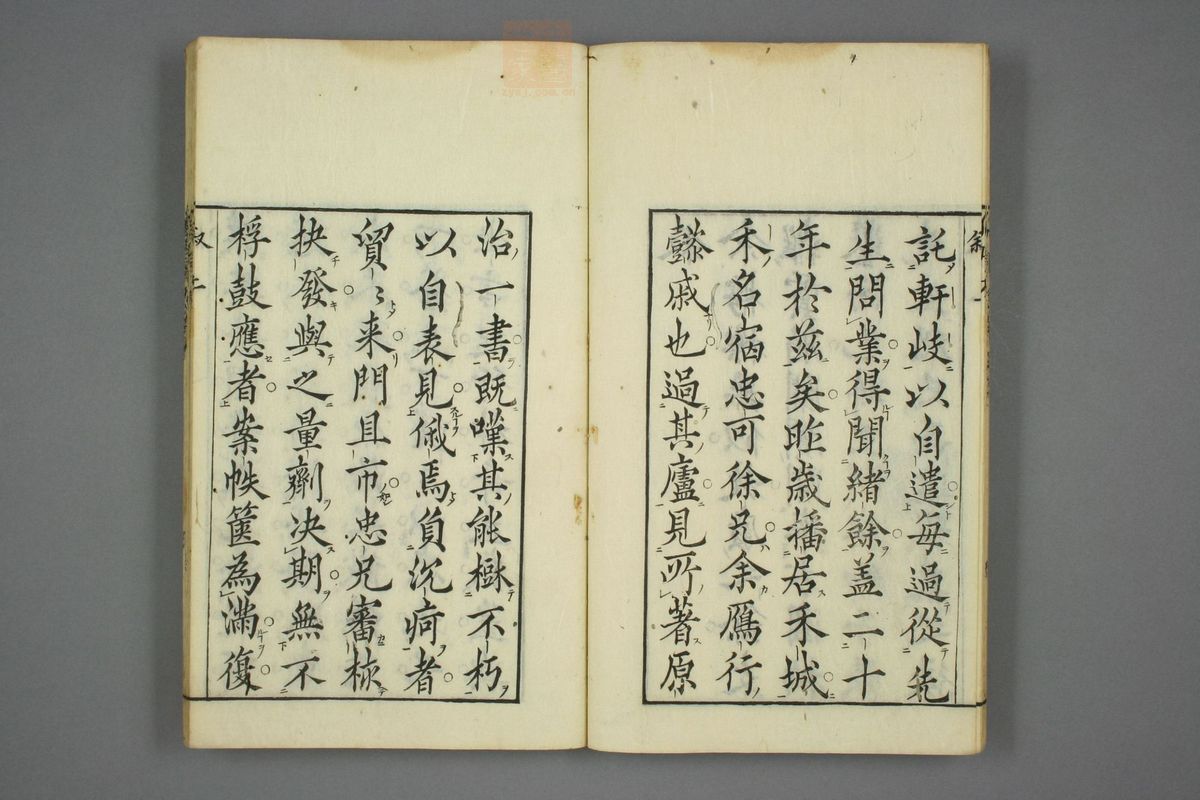 託軒岐以自遣每過從先
生問業得聞緒餘盖二十
年於茲矣昨歲播居禾城
禾名宿忠可徐兄余鴈行
懿戚也過其廬見所著原
治一書既嘆其能樹不朽
以自表見俄焉負沉疴者
貿〻来門且市忠兄審
抉發與之量劑决期無不
桴鼓應者案帙篋為滿復